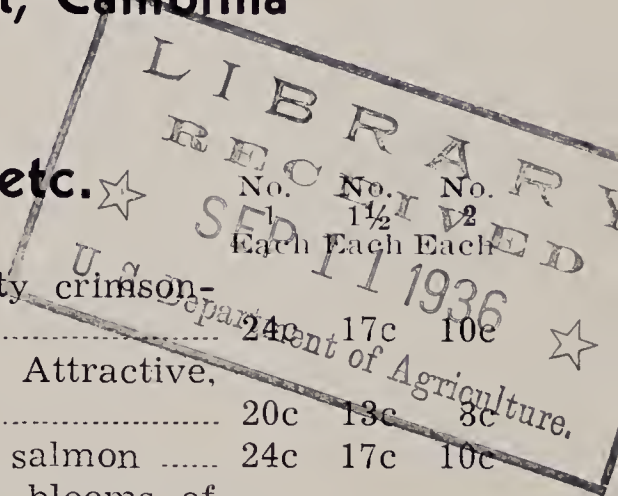 , California
LIBRARY
RECEIVED
SEP 11 1936
U. S. Department of Agriculture.
etc.
No. No. No.
1 1½ 2
Each Each Each
ty crimson-
24c 17c 10c
Attractive,
20c 13c 8c
salmon ...... 24c 17c 10c
blooms of